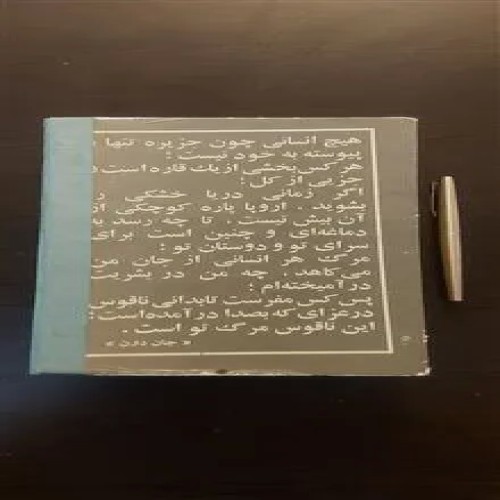 هیچ انسانی چون جزیره تنها
پیوسته به خود نیست؛
هر کس بخشی از یک قاره است
جزیی از کل؛
اگر زمانی دریا خشکی را
بشوید، اروپا پاره کوچکی از
آن بیش نیست، تا چه رسد به
دماغه‌ای و چنین است برای
سرای تو و دوستان تو؛
مرگ هر انسانی از جان من
می‌کاهد، چه من در بشریت
در آمیخته‌ام؛
پس کس مفرست تا بدانی ناقوس
در عزای که بصدا در آمده‌است؛
این ناقوس مرگ تو است.
« جان دون »